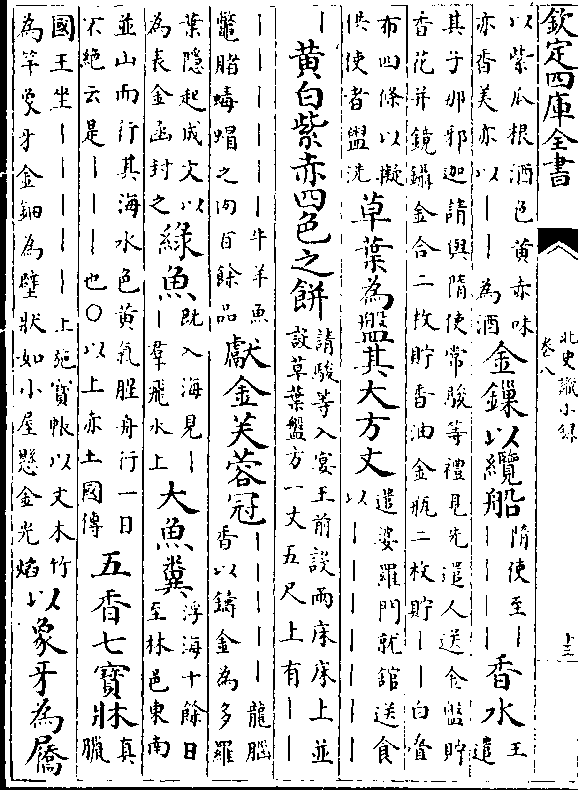 欽定四庫全書
北史識小錄
卷八
十三
以紫瓜根酒色黃赤味
亦香美亦以｜｜為酒
金鏁以纜船
隋使至｜
｜｜｜｜
香水
王
遣
其子那邪迦請與隋使常駿等禮見先遣人送金盤貯
香花并鏡鑷金合二枚貯香油金瓶二枚貯｜｜白疊
布四條以擬
供使者盥洗
草葉為盤其大方丈
遣婆羅門就館送食
以｜｜｜｜｜｜
｜
黄白紫赤四色之餅
請駿等入宴王前設兩床床上並
設草葉盤方一丈五尺上有｜｜
｜｜｜｜｜｜牛羊魚
鼈腤蝳蝐之肉百餘品
獻金芙蓉冠
｜｜｜｜｜龍腦
香以鑄金為多羅
葉隱起成文以
為表金函封之
綠魚
既入海見｜
｜羣飛水上
大魚糞
浮海十餘日
至林邑東南
並山而行其海水色黄氣腥舟行一日
不絶云是｜｜｜也○以上赤土國傳
五香七寳牀
真
臘
國王坐｜｜｜｜｜上施寳帳以文木竹
為竿象牙金鈿為壁狀如小屋懸金光焰
以象牙為屩